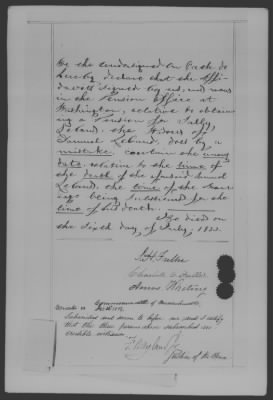 We the undersigned on Oath do
hereby declare that the affi-
davit signed by us, and now
in the Pension Office at
Washington, relative to obtain-
ing a Pension for Sally
Leland, the Widow of
Samuel Leland, does by a
mistake, contain the wrong
date relative to the time of
the death of the aforesaid Samuel
Leland, the time of the marri-
age being substituted for the
time of his death.
He died on
the sixth day of July, 1822.
A. H. Fuller
Charlotte C. Fuller
Amos Whiting
Commonwealth of Massachusetts
Subscribed and sworn to before me and I certify
that the three persons above subscribed are
credible witnesses
Justice of the Peace